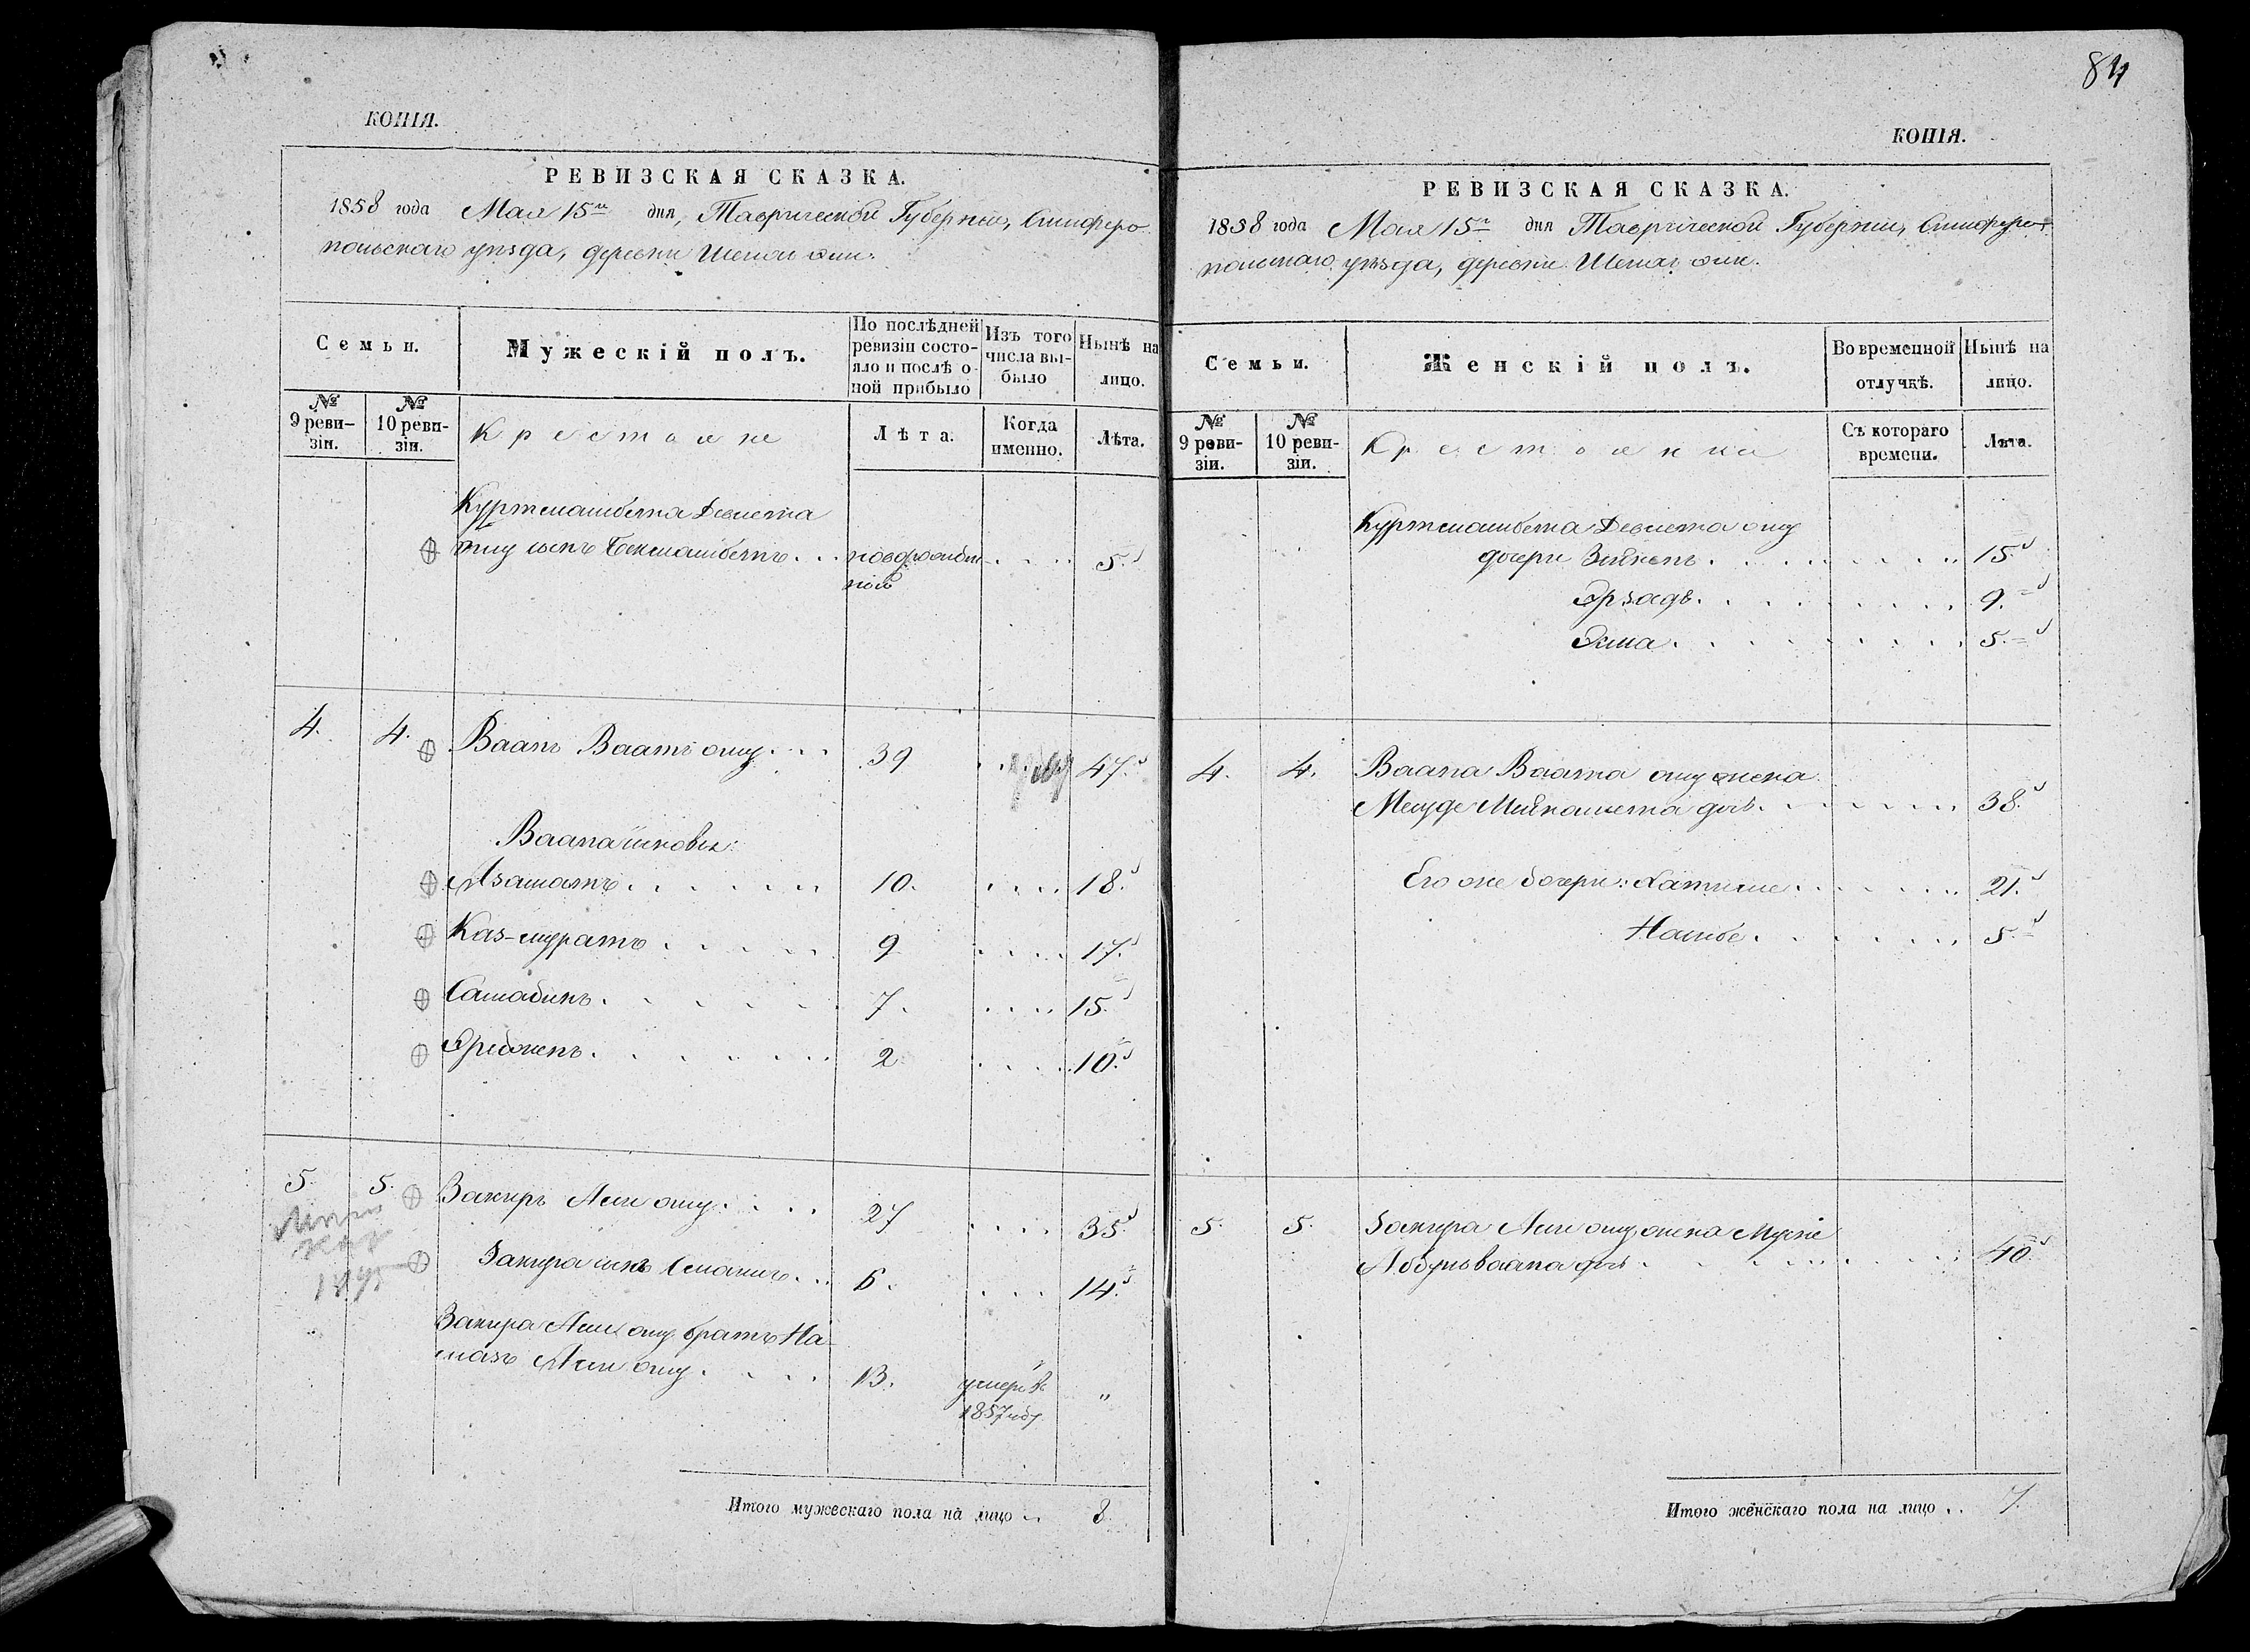 КОПІЯ.
РЕВИЗСКАЯ СКАЗКА.
1858 года Мая 15го дня, Таврической Губерніи, Симферо
польскаго уѣзда, деревни
Семьи.
Мужескій полъ.
По послѣдней
ревизіи состо-
яло и послѣ о-
ной прибыло
Изъ того
числа вы-
было
Нынѣ на
лицо.
№
9 реви-
зіи.
№
10 реви-
зіи.
Крестьяне
Лѣта.
Когда
именно.
Лѣта.
Куртмамбета Девлета
оглу сынъ Бекмамбетъ . . . новорожден- . . . . 5.
ной
4. 4. Ваапъ Ваатъ оглу . . . 39 47.
Ваапа сыновья:
Азаматъ . . . . . . 10. . . . . 18.
Каз-муратъ . . . . . 9 . . . . 17.
. . . . . . 7. . . . . 15.
. . . . . . 2. . . . . 10.
5. 5. Закиръ Али оглу . . . . 27 . . . . 35.
1895
Закира сынъ Османъ . . . 6. . . . 14.
Закира Али оглу братъ На-
мазъ Али оглу . . . . 13. умеръ въ "
1857 году
Итого мужескаго пола на лицо .. 8.
84
КОПІЯ.
РЕВИЗСКАЯ СКАЗКА.
1858 года Мая 15го дня Таврической Губерніи, Симферо-
польскаго уѣзда, деревни
Семьи.
Женскій полъ.
Во временной
отлучкѣ.
Нынѣ на
лицо.
№
9 реви-
зіи.
№
10 реви-
зіи.
Крестьянки
Съ котораго
времени.
Лѣта.
Куртмамбета Девлета оглу
дочери . . . . . . . . 15.
. . . . . . . . 9.
. . . . . . . . 5.
4. 4. Ваапа Ваата оглу жена
. . . . . . 38.
Его же дочери: . . . . . . 21.
. . . . . . 5.
5. 5. Закира Али оглу жена
Абдулваапа . . . . . . . 40.
Итого женскаго пола на лицо .. 7.